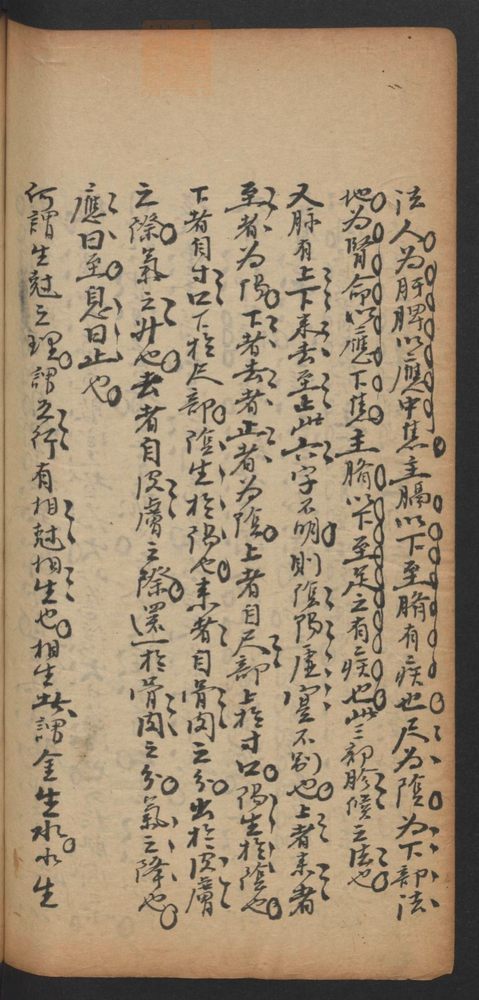 法人為肝脾以應中焦主膈以下至臍有疾也尺為陰為下部法
地為腎命以應下焦主臍以下至足之有疾也此三部胗候之法也
又脉有上下来去至止此六字不明則陰陽虛寔不別也上者来者
至者為陽下者去者止者為陰上者自尺部上於寸口陽生於陰也
下者自寸口下於尺部陰生於陽也来者自骨肉之分出於皮膚
之際氣之升也去者自皮膚之際還於骨肉之分氣之降也
應曰至息曰止也
何謂生尅之理謂五行有相尅相生也相生者謂金生水水生